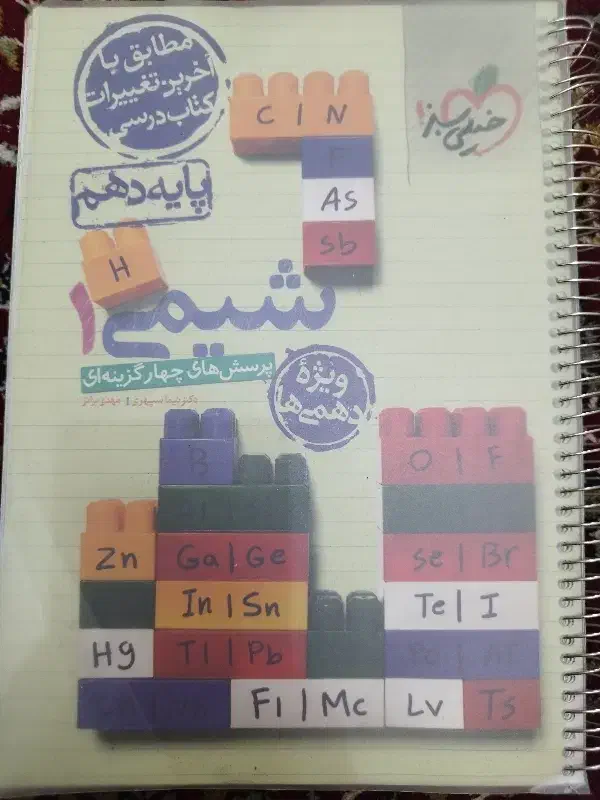 مطابق با
آخرین تغییرات
کتاب درسی
خیلی سبز
پایه دهم
C | N
P
As
Sb
H
شیمی ۱
پرسش‌های چهارگزینه‌ای
ویژهٔ
دهمی‌ها
B
O | F
Zn
Ga | Ge
Se | Br
In | Sn
Te | I
Hg
Tl | Pb
Po | At
Fl | Mc
Lv
Ts